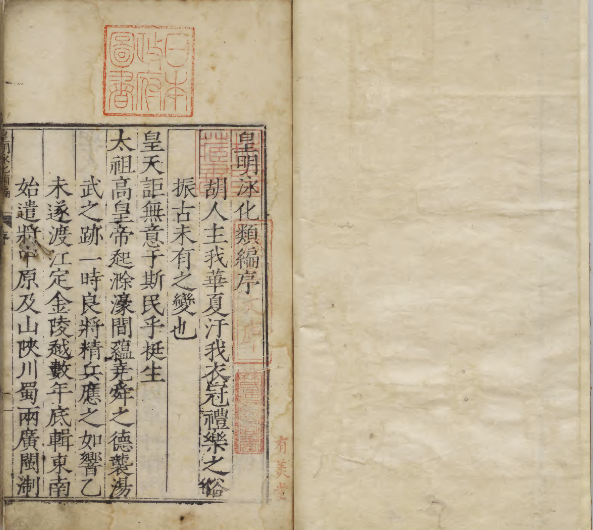 日本
政府
圖書
皇明泳化類編序
胡人主我華夏汙我衣冠禮樂之俗
振古未有之變也
皇天詎無意于斯民乎挺生
太祖高皇帝起滁濠間蘊堯舜之德襲湯
武之跡一時良將精兵應之如響乙
未遂渡江定金陵越數年底輯東南
始遣將中原及山陝川蜀兩廣閩淛
皇明泳化類編
序
有美堂